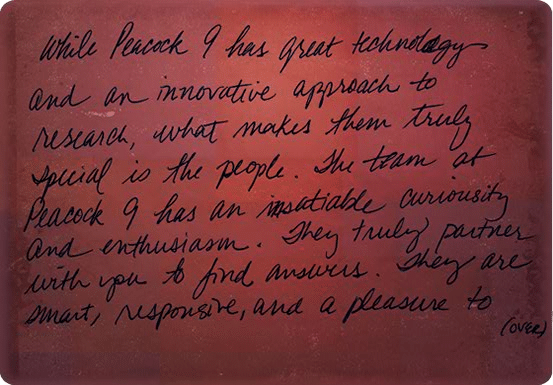 While Peacock 9 has great technology
and an innovative approach to
research, what makes them truly
special is the people. The team at
Peacock 9 has an insatiable curiousity
and enthusiasm. They truly partner
with you to find answers. They are
smart, responsive, and a pleasure to
(OVER)